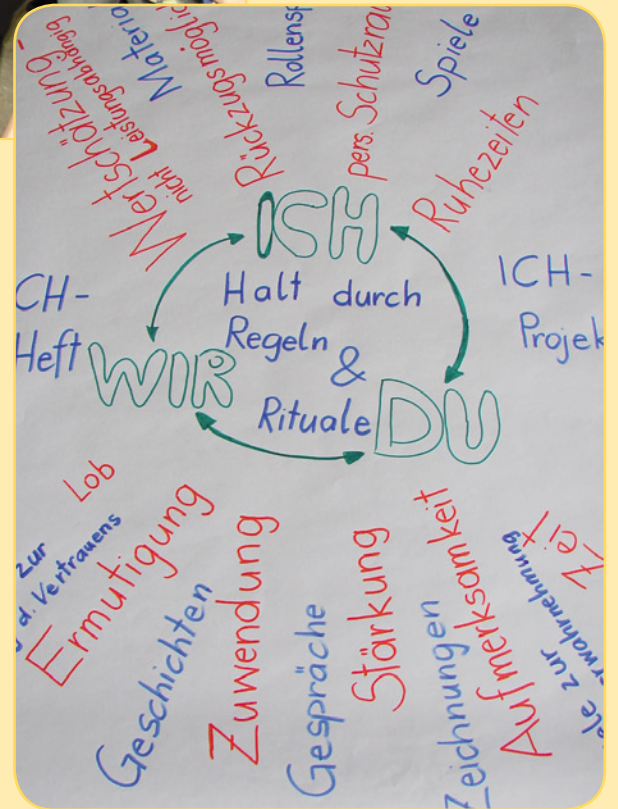 Wertschätzung
nicht Leistungsabhängig
Rückzugsmöglich
pers. Schutzrau
Spiele
Ruhezeiten
ICH
Halt durch
Regeln
&
Rituale
WIR
DU
CH-
Heft
ICH-
Projek
Lob
zur
d. Vertrauens
Ermutigung
Geschichten
Zuwendung
Gespräche
Stärkung
Zeichnungen
Aufmerksamkeit
Zeit
zur